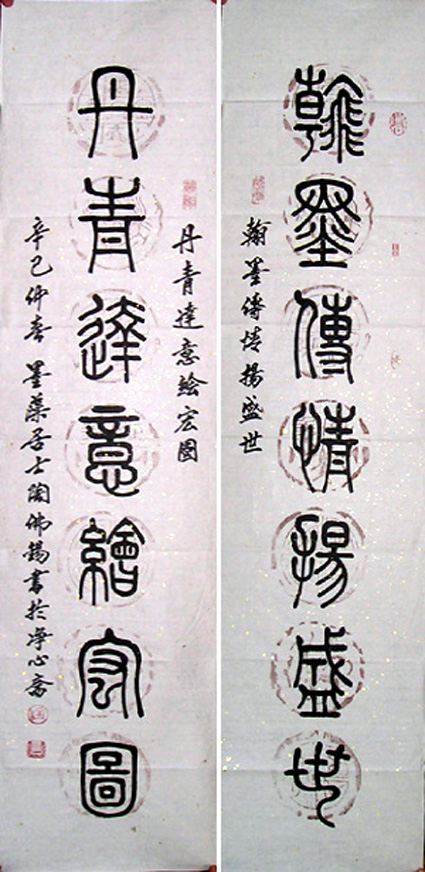 翰墨傳情揚盛世
翰墨傳情揚盛世
丹青達意繪宏圖
丹青達意繪宏圖
辛巳仲春 墨藻居士陶佛錫書於淨心齋